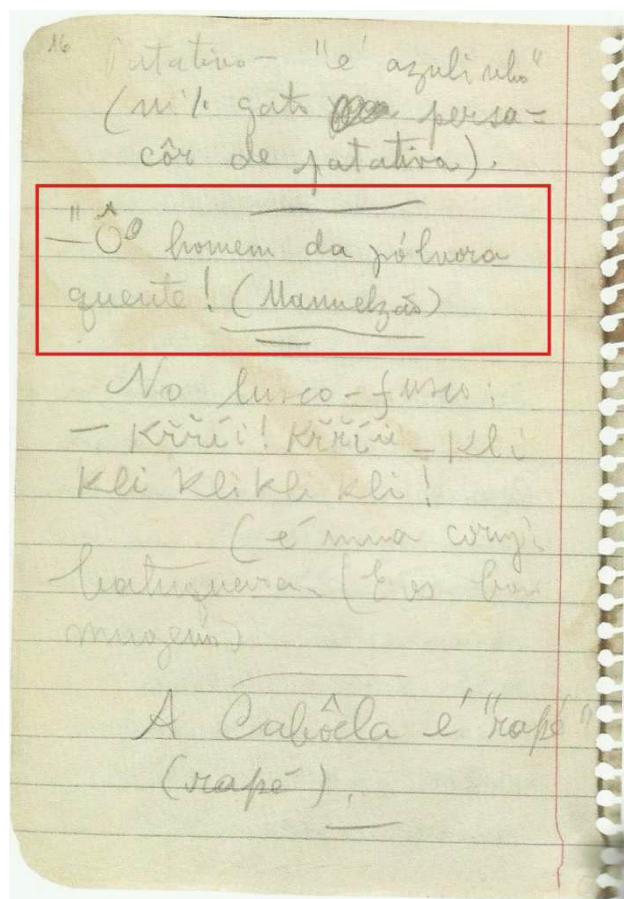 16
Patativa - "é azulinho"
(m/. gato persa =
côr de patativa).
"
— Ôo homem da pólvora
quente! (Manuelzão)
No lusco-fusco:
— Krříi! Krříii — Kli
Kli Kli kli kli!
(é uma coruj.
batuqueira. (E os bois
mugem)
A Cabôcla é "rapé"
(rapé).